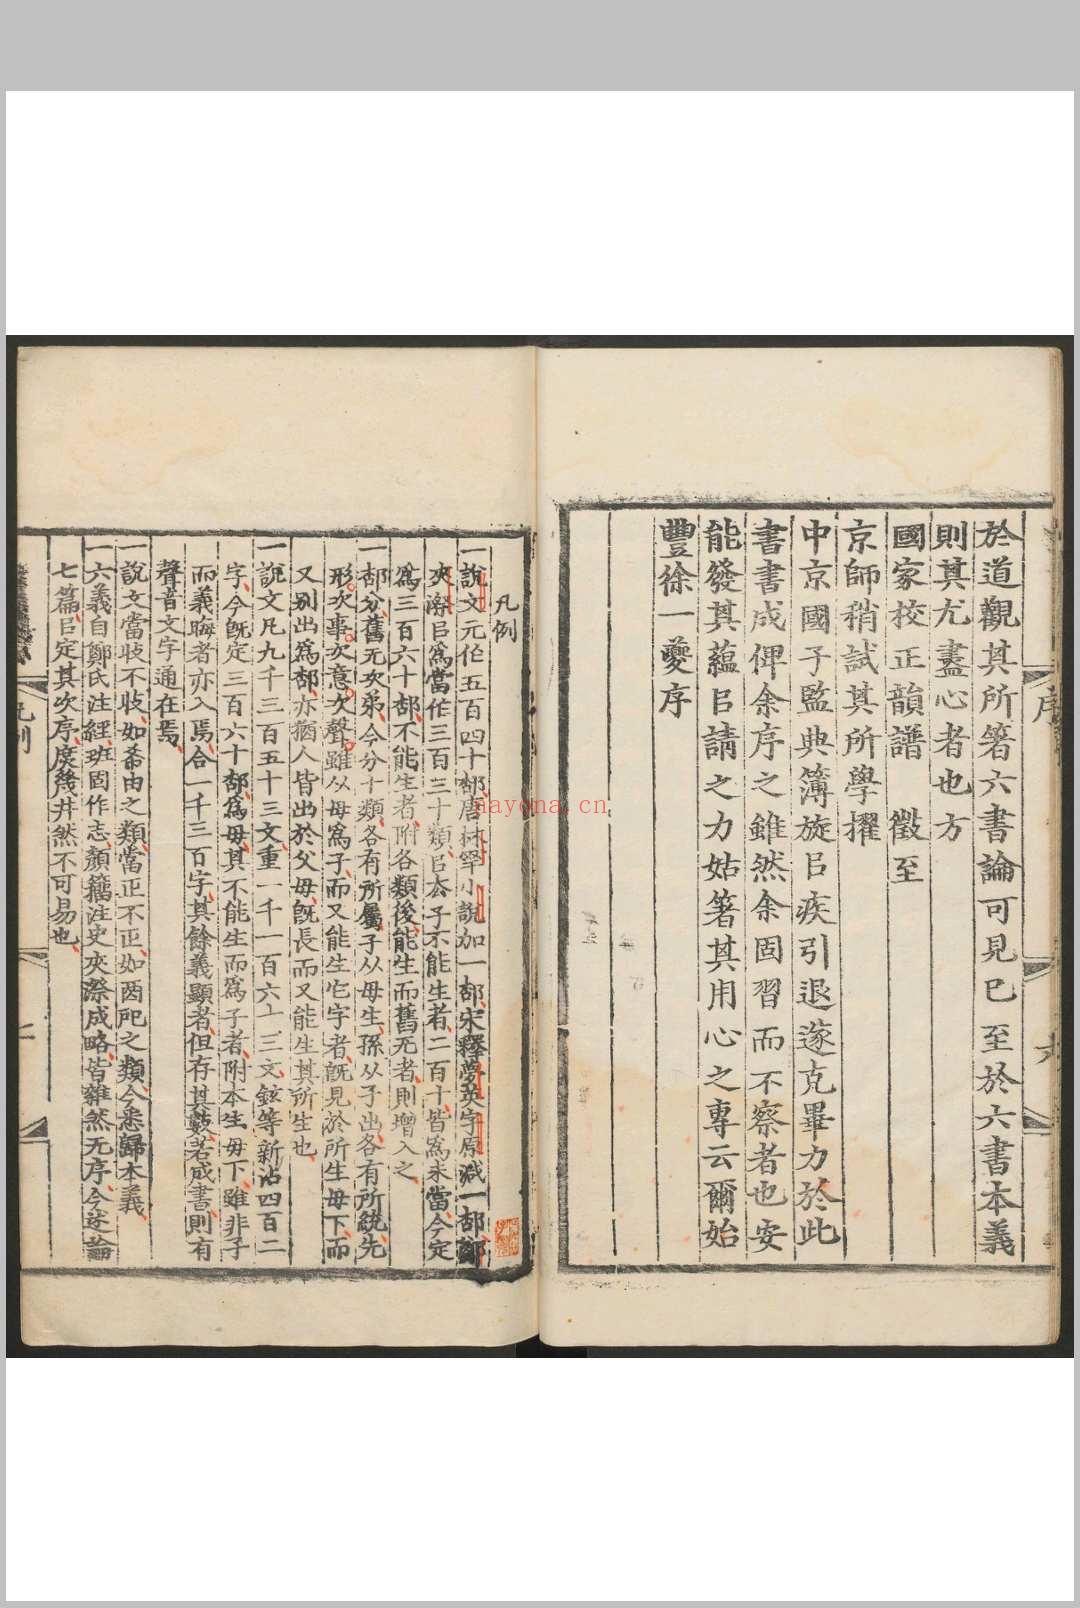 於道觀其所箸六書論可見已至於六書本義
則其尤盡心者也方
國家校正韻譜 徵至
京師稍試其所學擢
中京國子監典簿旋㠯疾引退遂克畢力於此
書書成俾余序之雖然余固習而不察者也安
能發其蘊㠯請之力姑箸其用心之專云爾始
豐徐一夔序
序
凡例
一說文元作五百四十部唐林罕小說加一部宋釋夢英字原減一部鄭
夾漈㠯為當作三百三十類㠯去子不能生者二百十皆為未當今定
為三百六十部不能生者附各類後能生而舊无者則增入之
一部分舊无次弟今分十類各有所屬子从母生孫从子出各有所統先
形次事次意次聲雖从母為子而又能生它字者旣見於所生母下而
又别出為部亦猶人皆出於父母旣長而又能生其所生也
一說文凡九千三百五十三文重一千一百六十三文鉉等新沾四百二
字今旣定三百六十部為母其不能生而為子者附本生母下雖非子
而義晦者亦入焉合一千三百字其餘義顯者但存其數若成書則有
聲音文字通在焉
一說文當歧不歧如㣇由之類當正不正如㢴戺之類今悉歸本義
一六義自鄭氏注經班固作志顏籀注史夾漈成略皆雜然无序今述論
七篇㠯定其次序庶幾井然不可易也
凡例
nayona.cn